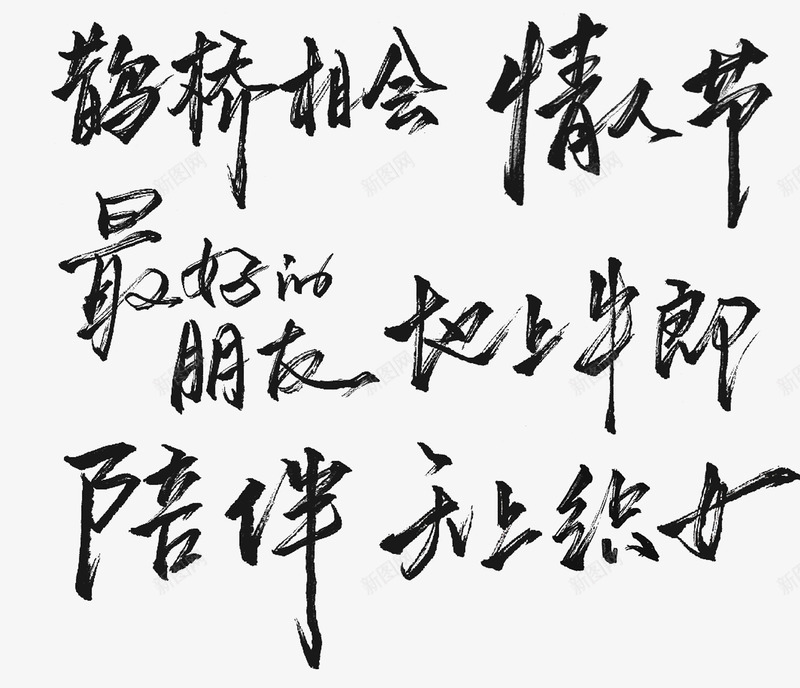 鹊桥相会 情人节
最好的
朋友
地上牛郎
陪伴 天上织女